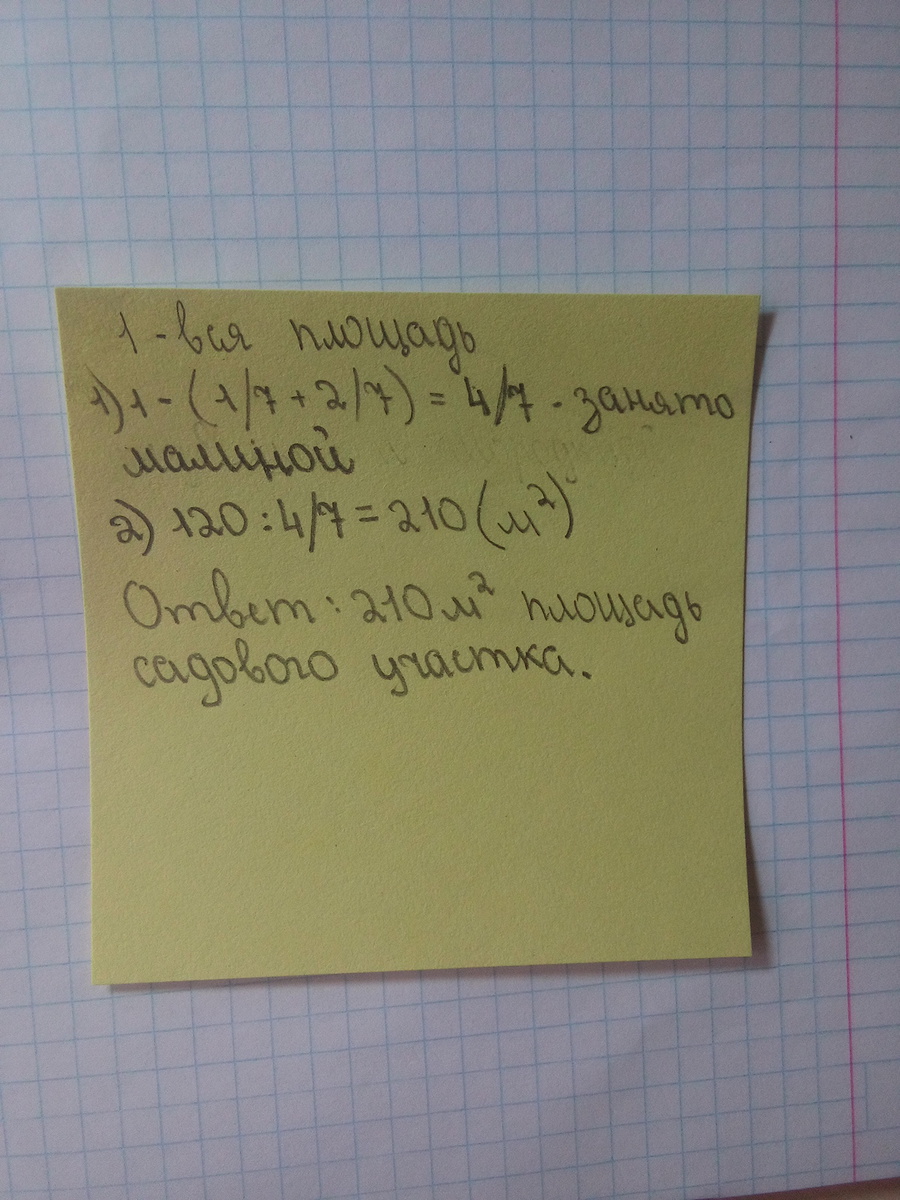 1 - вся площадь
1) 1 - (1/7 + 2/7) = 4/7 - занято
малиной
2) 120 : 4/7 = 210 (м²)
Ответ: 210 м² площадь
садового участка.